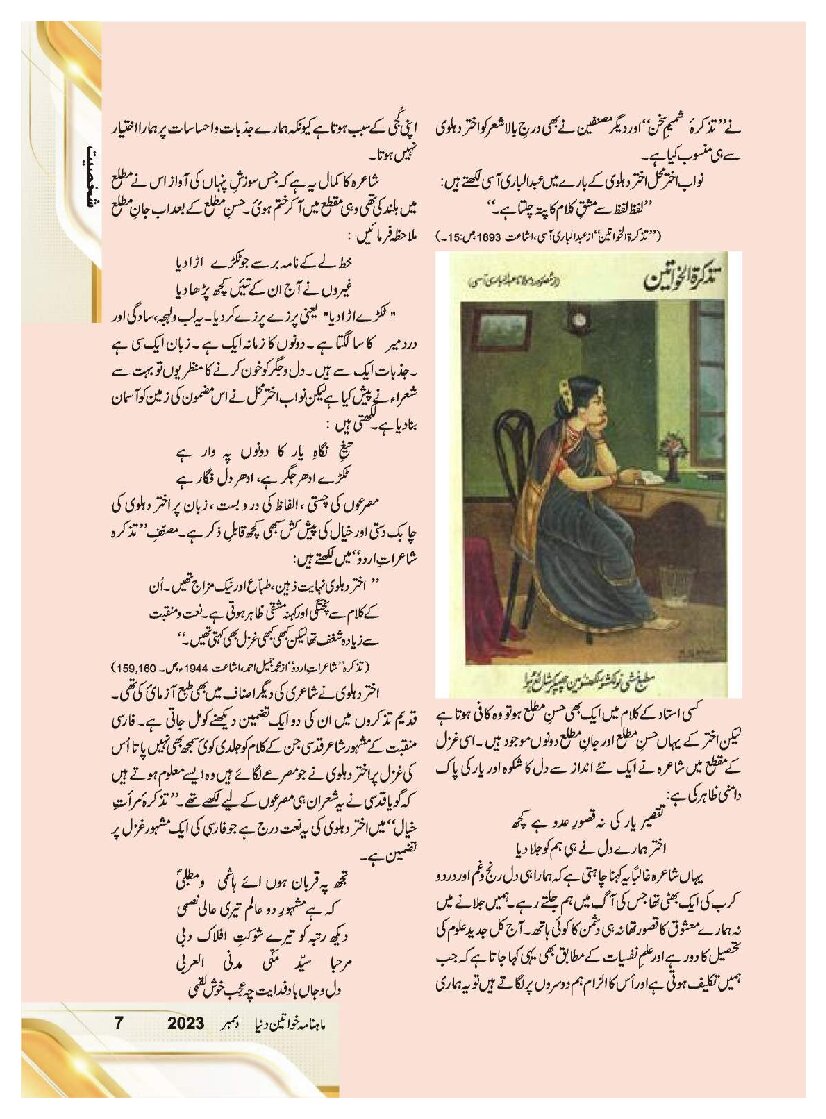 شخصیت
نے ’’تذکرۂ شمیم سخن‘‘ اور دیگر مصنفین نے بھی درج بالا شعر کو اختر دہلوی
سے ہی منسوب کیا ہے۔
نواب اختر محل اختر دہلوی کے بارے میں عبدالباری آسی لکھتے ہیں:
’’لفظ لفظ سے مشقِ کلام کا پتہ چلتا ہے۔‘‘
(’’تذکرۃ الخواتین‘‘ از عبدالباری آسی، اشاعت 1893، ص:15۔)
تذکرۃ الخواتین
مطبع منشی نولکشور لکھنؤ میں چھپکر شائع ہوا
کسی استاد کے کلام میں ایک بھی حسنِ مطلع ہو تو وہ کافی ہوتا ہے
لیکن اختر کے یہاں حسنِ مطلع اور جانِ مطلع دونوں موجود ہیں۔ اسی غزل
کے مقطع میں شاعرہ نے ایک نئے انداز سے دل کا شکوہ اور یار کی پاک
دامنی ظاہر کی ہے:
تقصیر یار کی نہ قصورِ عدو ہے کچھ
اختر ہمارے دل نے ہی ہم کو جلا دیا
یہاں شاعرہ غالباً یہ کہنا چاہتی ہے کہ ہمارا ہی دل رنج و غم اور درد و
کرب کی ایک بھٹی تھا جس کی آگ میں ہم جلتے رہے۔ ہمیں جلانے میں
نہ ہمارے معشوق کا قصور تھا نہ ہی دشمن کا کوئی ہاتھ۔ آج کل جدید علوم کی
تحصیل کا دور ہے اور علمِ نفسیات کے مطابق بھی یہی کہا جاتا ہے کہ جب
ہمیں تکلیف ہوتی ہے اور اُس کا الزام ہم دوسروں پر لگاتے ہیں تو یہ ہماری
اپنی کُجی کے سبب ہوتا ہے کیونکہ ہمارے جذبات و احساسات پر ہمارا اختیار
نہیں ہوتا۔
شاعرہ کا کمال یہ ہے کہ جس سوزشِ پنہاں کی آواز اس نے مطلع
میں بلند کی تھی وہی مقطع میں آ کر ختم ہوئی۔ حسنِ مطلع کے بعد اب جانِ مطلع
ملاحظہ فرمائیں :
خط لے کے نامہ بر سے جو ٹکڑے اڑا دیا
غیروں نے آج ان کے تئیں کچھ پڑھا دیا
"ٹکڑے اڑا دیا" یعنی پرزے پرزے کر دیا۔ یہ لب و لہجہ، سادگی اور
درد میر کا سا لگتا ہے۔ دونوں کا زمانہ ایک ہے۔ زبان ایک سی ہے
۔ جذبات ایک سے ہیں۔ دل و جگر کو خون کرنے کا منظر یوں تو بہت سے
شعراء نے پیش کیا ہے لیکن نواب اختر محل نے اس مضمون کی زمین کو آسمان
بنا دیا ہے۔ لکھتی ہیں :
تیغِ نگاہِ یار کا دونوں پہ وار ہے
ٹکڑے ادھر جگر ہے، ادھر دل فگار ہے
مصرعوں کی چستی، الفاظ کی در و بست، زبان پر اختر دہلوی کی
چابک دستی اور خیال کی پیش کش سبھی کچھ قابلِ ذکر ہے۔ مصنفِ ’’تذکرہ
شاعراتِ اردو‘‘ میں لکھتے ہیں:
’’اختر دہلوی نہایت ذہین، طبّاع اور نیک مزاج تھیں۔ اُن
کے کلام سے پختگی اور کہنہ مشقی ظاہر ہوتی ہے۔ نعت و منقبت
سے زیادہ شغف تھا لیکن کبھی کبھی غزل بھی کہتی تھیں۔‘‘
(تذکرہ ’’شاعراتِ اردو‘‘ از محمد جمیل احمد، اشاعت 1944، ص۔ 159,160)
اختر دہلوی نے شاعری کی دیگر اصناف میں بھی طبع آزمائی کی تھی۔
قدیم تذکروں میں ان کی دو ایک تضمین دیکھنے کو مل جاتی ہے۔ فارسی
منقبت کے مشہور شاعر قدسی جن کے کلام کو جلدی کوئی سمجھ بھی نہیں پاتا اُس
کی غزل پر اختر دہلوی نے جو مصرعے لگائے ہیں وہ ایسے معلوم ہوتے ہیں
کہ گویا قدسی نے یہ شعر ان ہی مصرعوں کے لیے لکھے تھے۔ ’’تذکرۂ مرأتِ
خیال‘‘ میں اختر دہلوی کی یہ نعت درج ہے جو فارسی کی ایک مشہور غزل پر
تضمین ہے۔
تجھ پہ قربان ہوں اے ہاشمی و مطلبیؐ
کہ ہے مشہورِ دو عالم تیری عالی نسبی
دیکھ رتبہ کو تیرے شوکتِ افلاک دبی
مرحبا سیّد مکّی مدنی العربی
دل و جاں باد فدایت چہ عجب خوش لقبی
ماہنامہ خواتین دنیا دسمبر 2023 7